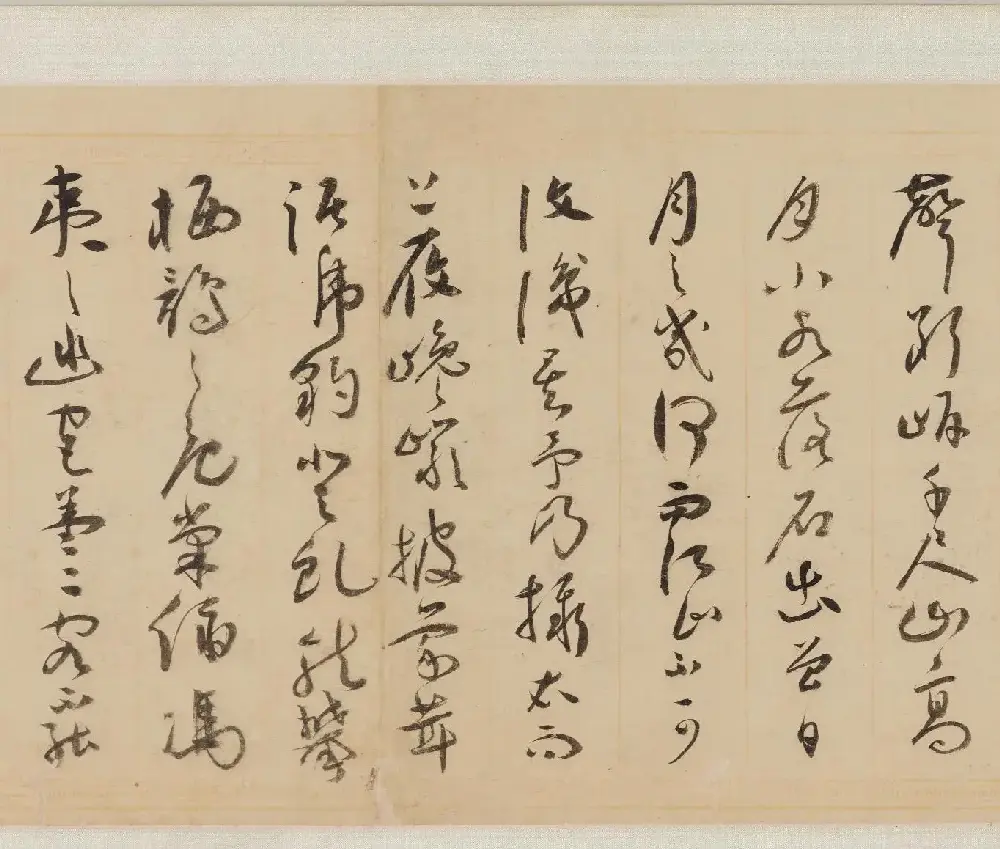 聲斷岸千尺山高
月小水落石出曾日
月之幾何而江山不可
復識矣予乃攝衣而
上履巉巖披蒙茸
踞虎豹登虬龍攀
栖鶻之危巢俯馮
夷之幽宮蓋二客不能